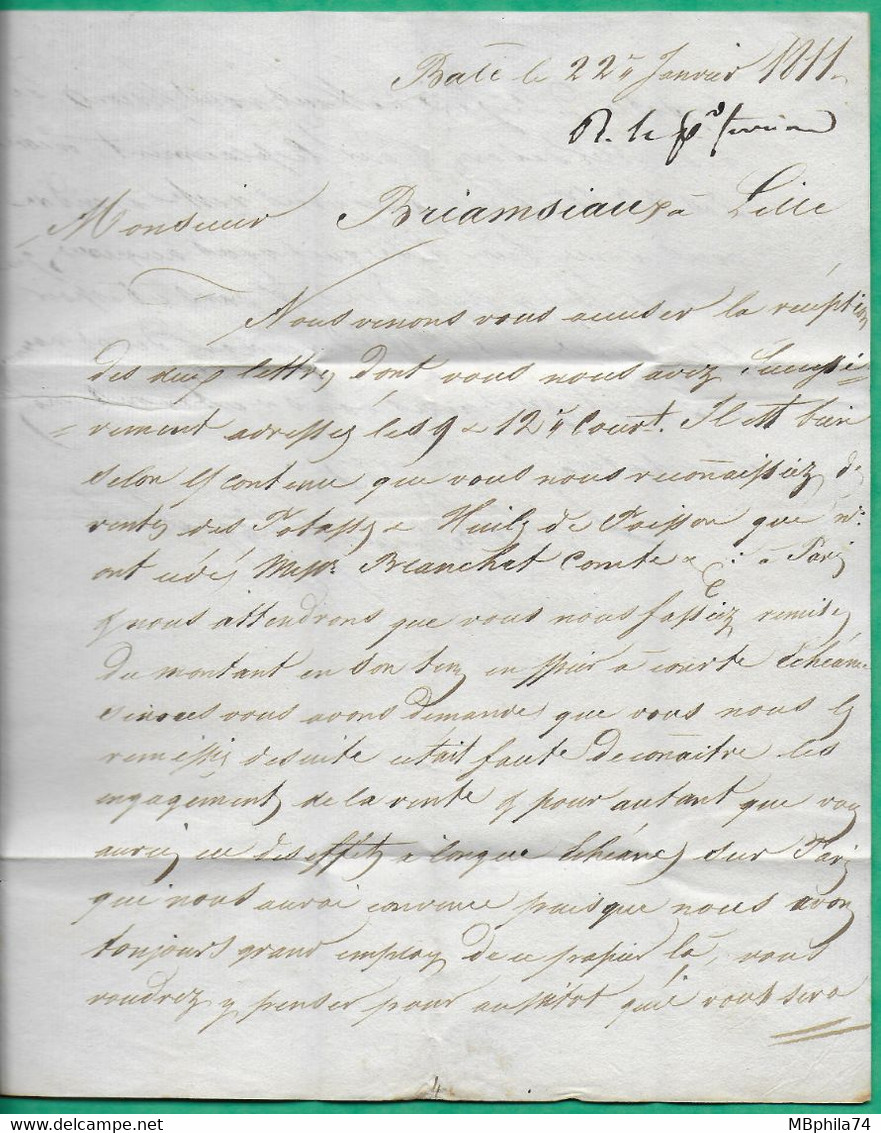 Bale le 22 " Janvier 1811.
R. le
Monsieur Briamsiaux à Lille
Nous venons vous accuser la réception
des deux lettres dont vous nous avez Successi=
=vement adressés les 9 & 12 " Court. Il est bien
Selon contenu que vous nous reconnaissiez de
ventes des Potasses & Huiles de Poisson que
ont cédés Messrs. Blanchet Comte & C : à Paris
& nous attendrons que vous nous fassiez remises
du montant en son tems en papier à courte échéance
Si nous vous avons demandés que vous nous les
remissiez desuite cetait faute de connaitre les
engagéments de la vente & pour autant que vous
auriez eu des effets à longue échéances sur Paris
que nous auroi convenu puisque nous avons
toujours grand employ de ce papier là, vous
voudrez y penser pour aussitot qu'il vous sera
4
MBphila74